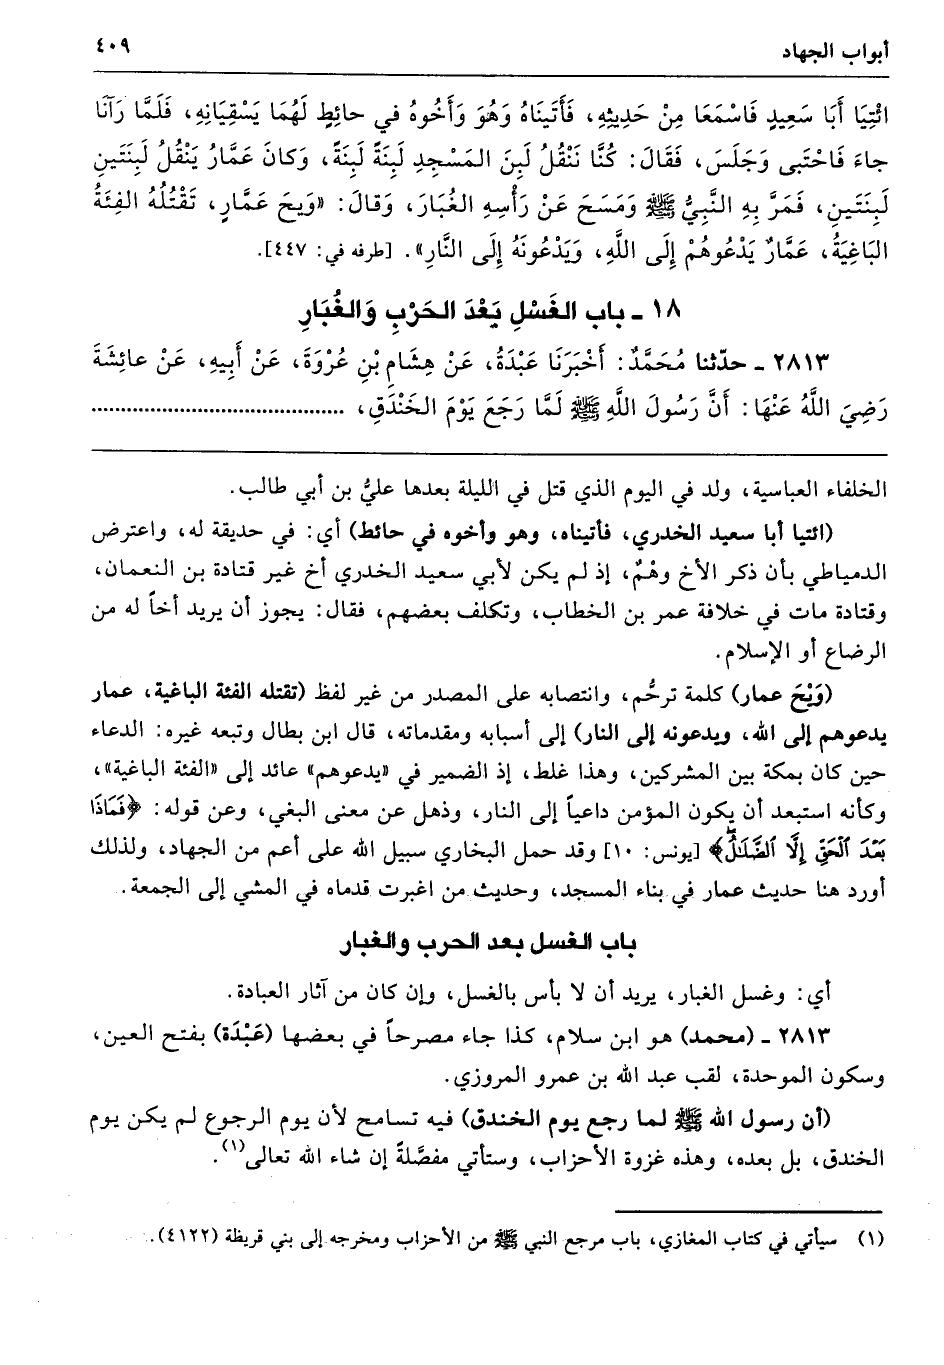 أبواب الجهاد ٤٠٩
ائْتِيَا أَبَا سَعِيدٍ فَاسْمَعَا مِنْ حَدِيثِهِ، فَأَتَيْنَاهُ وَهُوَ وَأَخُوهُ في حائِطٍ لَهُما يَسْقِيَانِهِ، فَلَمَّا رَآنَا
جاءَ فَاحْتَبى وَجَلَسَ، فَقَالَ: كُنَّا نَنْقُلُ لَبِنَ المَسْجِدِ لَبِنَةً لَبِنَةً، وَكانَ عَمَّارٌ يَنْقُلُ لَبِنَتَينِ
لَبِنَتَينِ، فَمَرَّ بِهِ النَّبِيُّ ﷺ وَمَسَحَ عَنْ رَأْسِهِ الغُبَارَ، وَقَالَ: «وَيحَ عَمَّارٍ، تَقْتُلُهُ الفِئَةُ
البَاغِيَةُ، عَمَّارٌ يَدْعُوهُمْ إِلَى اللَّهِ، وَيَدْعُونَهُ إِلَى النَّارِ». [طرفه في: ٤٤٧].
١٨ ـ باب الغَسْلِ بَعْدَ الحَرْبِ وَالغُبَارِ
٢٨١٣ ـ حدّثنا مُحَمَّدٌ: أَخْبَرَنَا عَبْدَةُ، عَنْ هِشَامِ بْنِ عُرْوَةَ، عَنْ أَبِيهِ، عَنْ عائِشَةَ
رَضِيَ اللَّهُ عَنْهَا: أَنَّ رَسُولَ اللَّهِ ﷺ لَمَّا رَجَعَ يَوْمَ الخَنْدَقِ، ......................................
الخلفاء العباسية، ولد في اليوم الذي قتل في الليلة بعدها عليُّ بن أبي طالب.
(ائتيا أبا سعيد الخدري، فأتيناه، وهو وأخوه في حائط) أي: في حديقة له، واعترض
الدمياطي بأن ذكر الأخ وهْمٌ، إذ لم يكن لأبي سعيد الخدري أخ غير قتادة بن النعمان،
وقتادة مات في خلافة عمر بن الخطاب، وتكلف بعضهم، فقال: يجوز أن يريد أخاً له من
الرضاع أو الإسلام.
(وَيْحَ عمار) كلمة ترحُّم، وانتصابه على المصدر من غير لفظ (تقتله الفئة الباغية، عمار
يدعوهم إلى الله، ويدعونه إلى النار) إلى أسبابه ومقدماته، قال ابن بطال وتبعه غيره: الدعاء
حين كان بمكة بين المشركين، وهذا غلط، إذ الضمير في «يدعوهم» عائد إلى «الفئة الباغية»،
وكأنه استبعد أن يكون المؤمن داعياً إلى النار، وذهل عن معنى البغي، وعن قوله: ﴿فَمَاذَا
بَعْدَ ٱلْحَقِّ إِلَّا ٱلضَّلَٰلُ﴾ [يونس: ١٠] وقد حمل البخاري سبيل الله على أعم من الجهاد، ولذلك
أورد هنا حديث عمار في بناء المسجد، وحديث من اغبرت قدماه في المشي إلى الجمعة.
باب الغسل بعد الحرب والغبار
أي: وغسل الغبار، يريد أن لا بأس بالغسل، وإن كان من آثار العبادة.
٢٨١٣ ـ (محمد) هو ابن سلام، كذا جاء مصرحاً في بعضها (عَبْدَة) بفتح العين،
وسكون الموحدة، لقب عبد الله بن عمرو المروزي.
(أن رسول الله ﷺ لما رجع يوم الخندق) فيه تسامح لأن يوم الرجوع لم يكن يوم
الخندق، بل بعده، وهذه غزوة الأحزاب، وستأتي مفصَّلةً إن شاء الله تعالى(١).
(١) سيأتي في كتاب المغازي، باب مرجع النبي ﷺ من الأحزاب ومخرجه إلى بني قريظة (٤١٢٢).